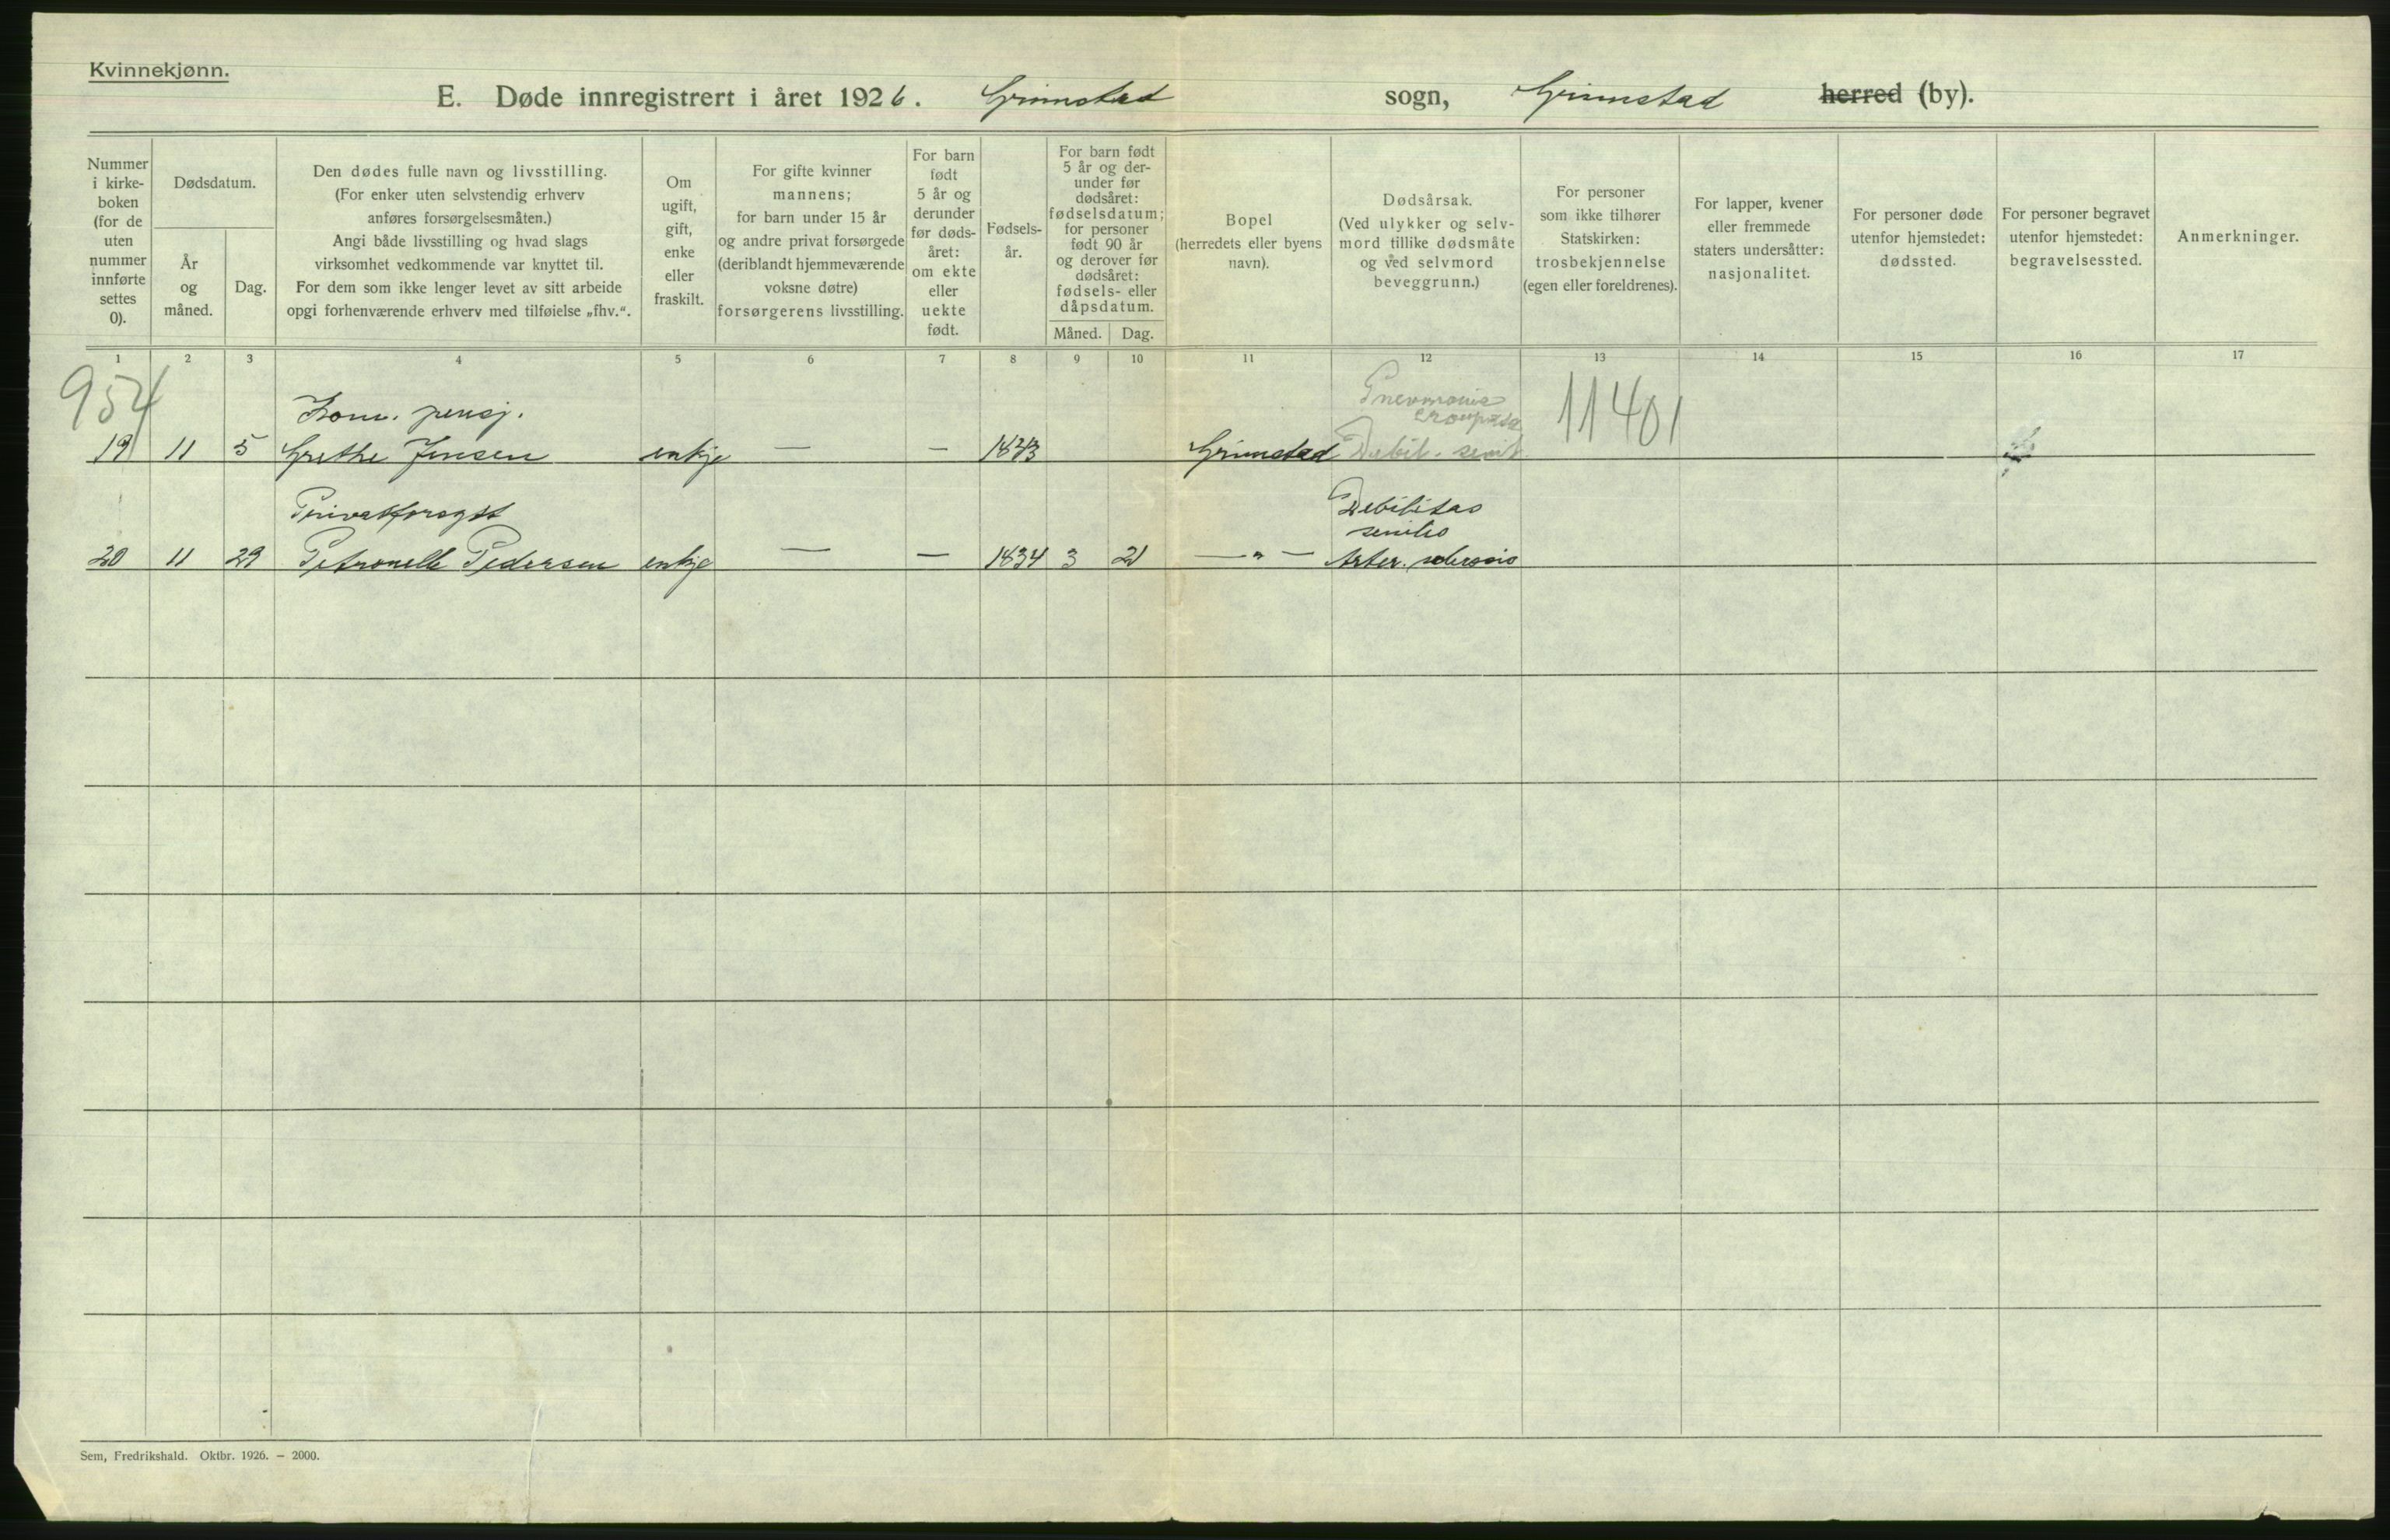 Kvinnekjønn.
E. Døde innregistrert i året 1926. Grimstad sogn, Grimstad herred (by).
Nummer
i kirke-
boken
(for de
uten
nummer
innførte
settes
0).
Dødsdatum.
År
og
måned.
Dag.
Den dødes fulle navn og livsstilling.
(For enker uten selvstendig erhverv
anføres forsørgelsesmåten.)
Angi både livsstilling og hvad slags
virksomhet vedkommende var knyttet til.
For dem som ikke lenger levet av sitt arbeide
opgi forhenværende erhverv med tilføielse „fhv.“.
Om
ugift,
gift,
enke
eller
fraskilt.
For gifte kvinner
mannens;
for barn under 15 år
og andre privat forsørgede
(deriblandt hjemmeværende
voksne døtre)
forsørgerens livsstilling.
For barn
født
5 år og
derunder
før døds-
året:
om ekte
eller
uekte
født.
Fødsels-
år.
For barn født
5 år og der-
under før
dødsåret:
fødselsdatum;
for personer
født 90 år
og derover før
dødsåret:
fødsels- eller
dåpsdatum.
Måned. Dag.
Bopel
(herredets eller byens
navn).
Dødsårsak.
(Ved ulykker og selv-
mord tillike dødsmåte
og ved selvmord
beveggrunn.)
For personer
som ikke tilhører
Statskirken:
trosbekjennelse
(egen eller foreldrenes).
For lapper, kvener
eller fremmede
staters undersåtter:
nasjonalitet.
For personer døde
utenfor hjemstedet:
dødssted.
For personer begravet
utenfor hjemstedet:
begravelsessted.
Anmerkninger.
1 2 3 4 5 6 7 8 9 10 11 12 13 14 15 16 17
954
Kom. pensj.
Pnevmonia
crouposa
11401
19 11 5 Grethe Jensen enkje — — Grimstad Debil. senil
Privatforsgt
Debilitas
senilis
20 11 29 Petronelle Pedersen enkje — — 1834 3 21 —"— Arter. sclerosis
Sem, Fredrikshald. Oktbr. 1926. — 2000.